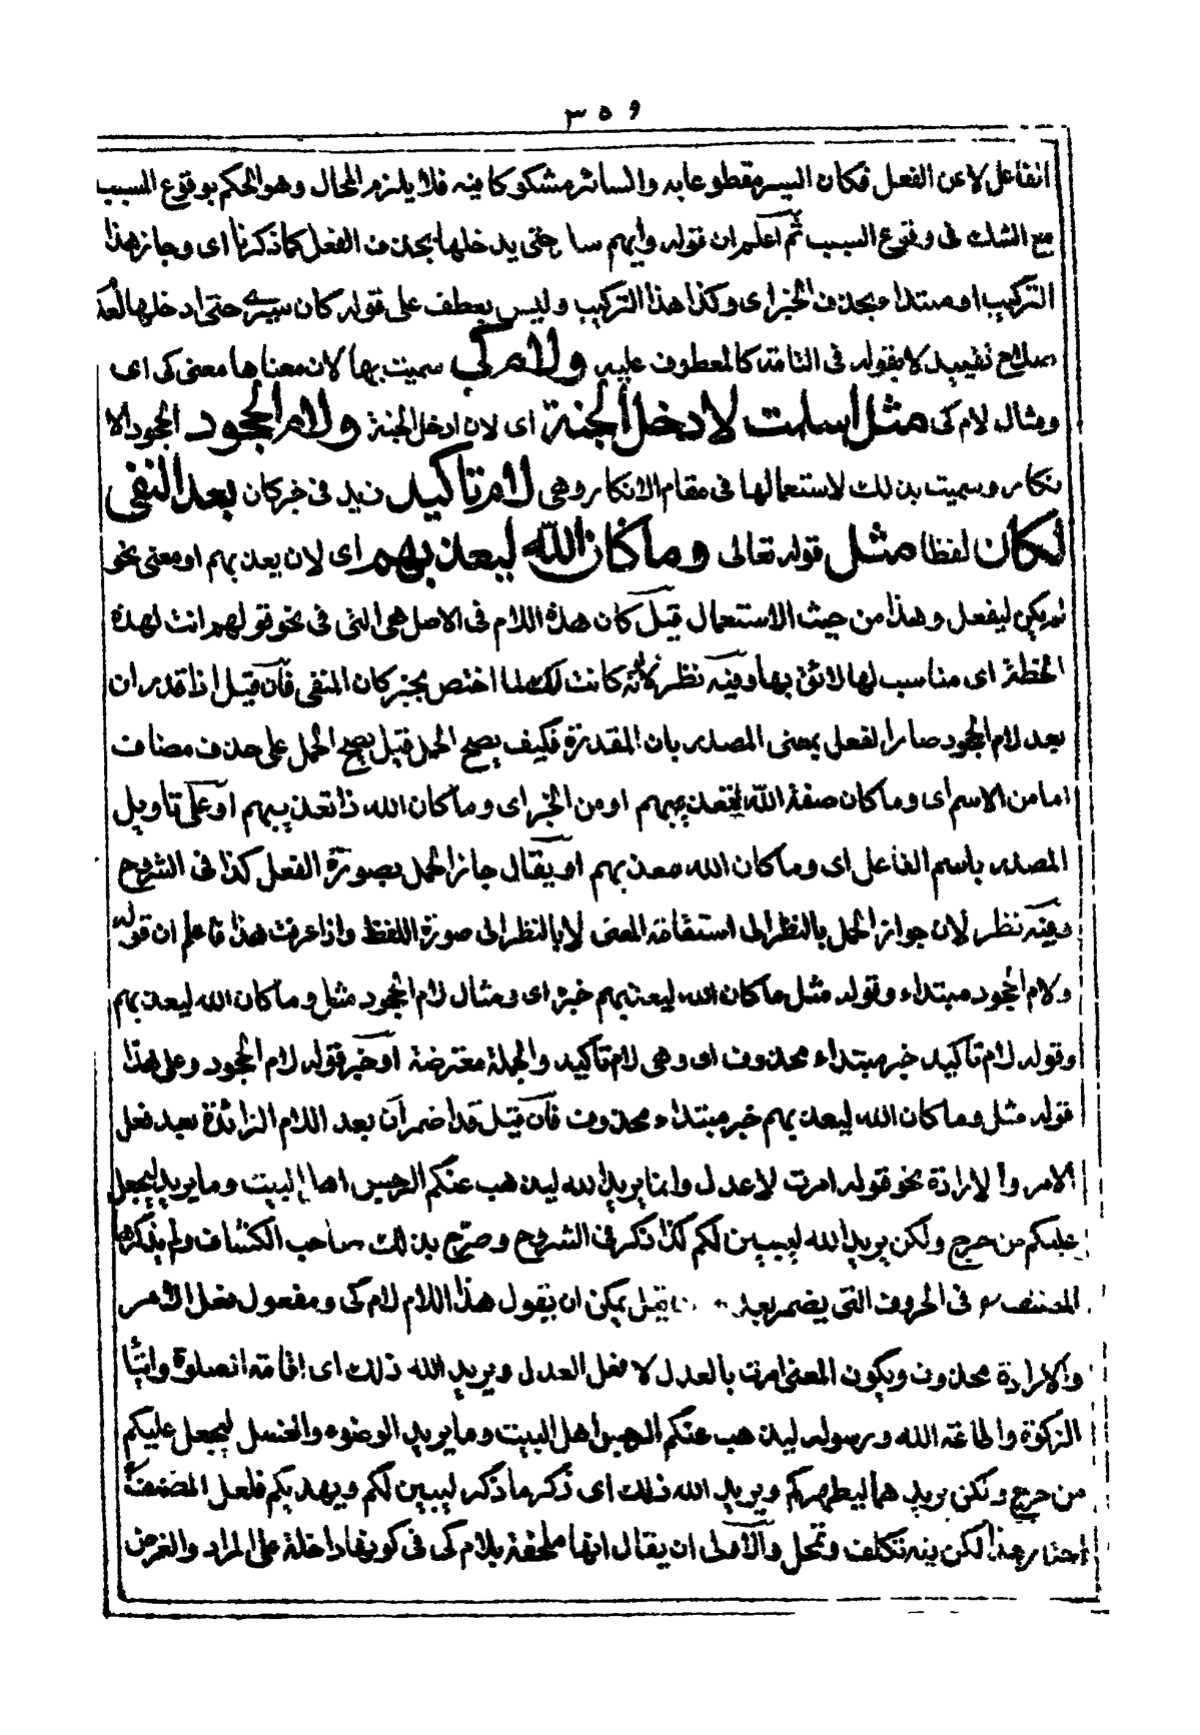 ٣٥٩
الفاعل لا عن الفعل فكان السير مقطوعا به والسائر مشكوكا فيه فلا يلزم المحال وهو الحكم بوقوع المسبب
مع الشك فى وقوع السبب ثم اعلم ان قوله وايهم سار حتى يدخلها بحذف الفعل كما ذكرنا اى وجاز هذا
التركيب او مبتداء بحذف الخبر اى وكذا هذا التركيب وليس بعطف على قوله كان سيرى حتى ادخلها لعدم
صلاح تقييده لا بقوله فى التامة كالمعطوف عليه ولام كى سميت بها لان معناها معنى كى اى
ومثال لام كى مثل اسلمت لادخل الجنة اى لان ادخل الجنة ولام الجحود الجحود الا
نكار وسميت بذلك لاستعمالها فى مقام الانكار وهى لام تاكيد زيد فى خبر كان بعد النفى
لكان لفظا مثل قوله تعالى وما كان الله ليعذبهم اى لان يعذبهم او معنى نحو
لم يكن ليفعل وهذا من حيث الاستعمال قيل كان هذه اللام فى الاصل هى التى فى نحو قولهم انت لهذه
الخطة اى مناسب لها لائق بها وفيه نظر لانه كانت لك لما اختص بخبر كان المنفى فان قيل اذا قدر ان
بعد لام الجحود صار الفعل بمعنى المصدر بان المقدرة فكيف يصح الحمل قيل يصح الحمل على حذف مضاف
اما من الاسم اى وما كان صفة الله تعذيبهم او من الخبر اى وما كان الله ذا تعذيبهم او على تاويل
المصدر باسم الفاعل اى وما كان الله معذبهم او يقال جاز الحمل بصورة الفعل كذا فى الشروح
وفيه نظر لان جواز الحمل بالنظر الى استقامة المعنى لا بالنظر الى صورة اللفظ واذا عرفت هذا فاعلم ان قوله
ولام الجحود مبتداء وقوله مثل ما كان الله ليعذبهم خبره اى ومثال لام الجحود مثل وما كان الله ليعذبهم
وقوله لام تاكيد خبر مبتداء محذوف اى وهى لام تاكيد والجملة معترضة او خبر قوله لام الجحود وعلى هذا
قوله مثل وما كان الله ليعذبهم خبر مبتداء محذوف فان قيل قد اضمر ان بعد اللام الزائدة بعد فعل
الامر والارادة نحو قوله امرت لاعدل وانما يريد الله ليذهب عنكم الرجس اهل البيت وما يريد ليجعل
عليكم من حرج ولكن يريد الله ليبين لكم كذا ذكر فى الشروح وصرح بذلك صاحب الكشاف ولم يذكرها
المصنف فى الحروف التى يضمر بعد قيل يمكن ان يقول هذا اللام لام كى ومفعول فعل الامر
والارادة محذوف ويكون المعنى امرت بالعدل لا فعل العدل ويريد الله ذلك اى اقامة الصلوة وايتاء
الزكوة واطاعة الله ورسوله ليذهب عنكم الرجس اهل البيت وما يريد الوضوء والغسل ليجعل عليكم
من حرج ولكن يريد هما ليطهركم ويريد الله ذلك اى ذكر ما ذكر ليبين لكم ويهديكم فلعل المصنف
اختار هذا لكن فيه تكلف وتمحل والاولى ان يقال انها ملحقة بلام كى فى كونها داخلة على المراد والغرض